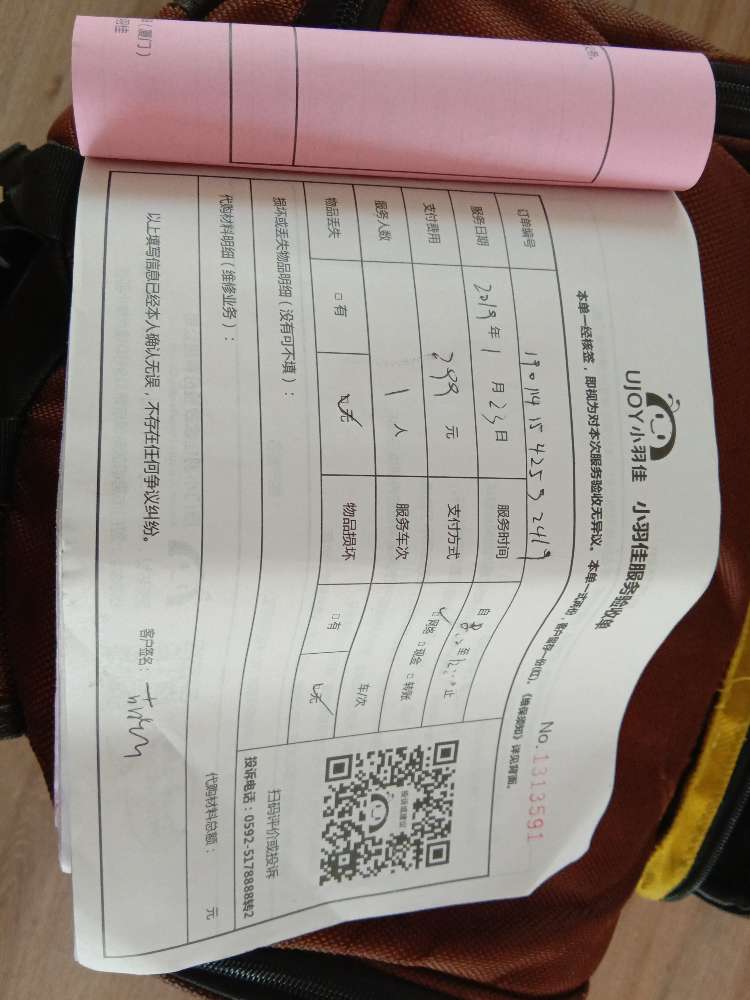 UJOY小羽佳 小羽佳服务验收单
No.1313591
本单一经核签，即视为对本次服务验收无异议。本单一式两份，客户留存一份(红)。《维保须知》详见背面。
订单编号 19011415425
服务日期 2019年1月23日 服务时间 自 至 止
支付费用 299元 支付方式 ☑网络 □现金 □转账
服务人数 1人 服务车次 车/次
物品丢失 □有 ☑无 物品损坏 □有 ☑无
损坏或丢失物品明细（没有可不填）：
代购材料明细（维修业务）： 代购材料总额： 元
以上填写信息已经本人确认无误，不存在任何争议纠纷。 客户签名：
值保或建议
扫码评价或投诉
投诉电话：0592-5178888转2
（厦门）